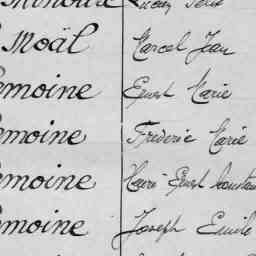 Moäl Marcel Jean
emoine Ernest Marie
emoine Frédéric Marie
emoine Henri Ernest
emoine Joseph Emile